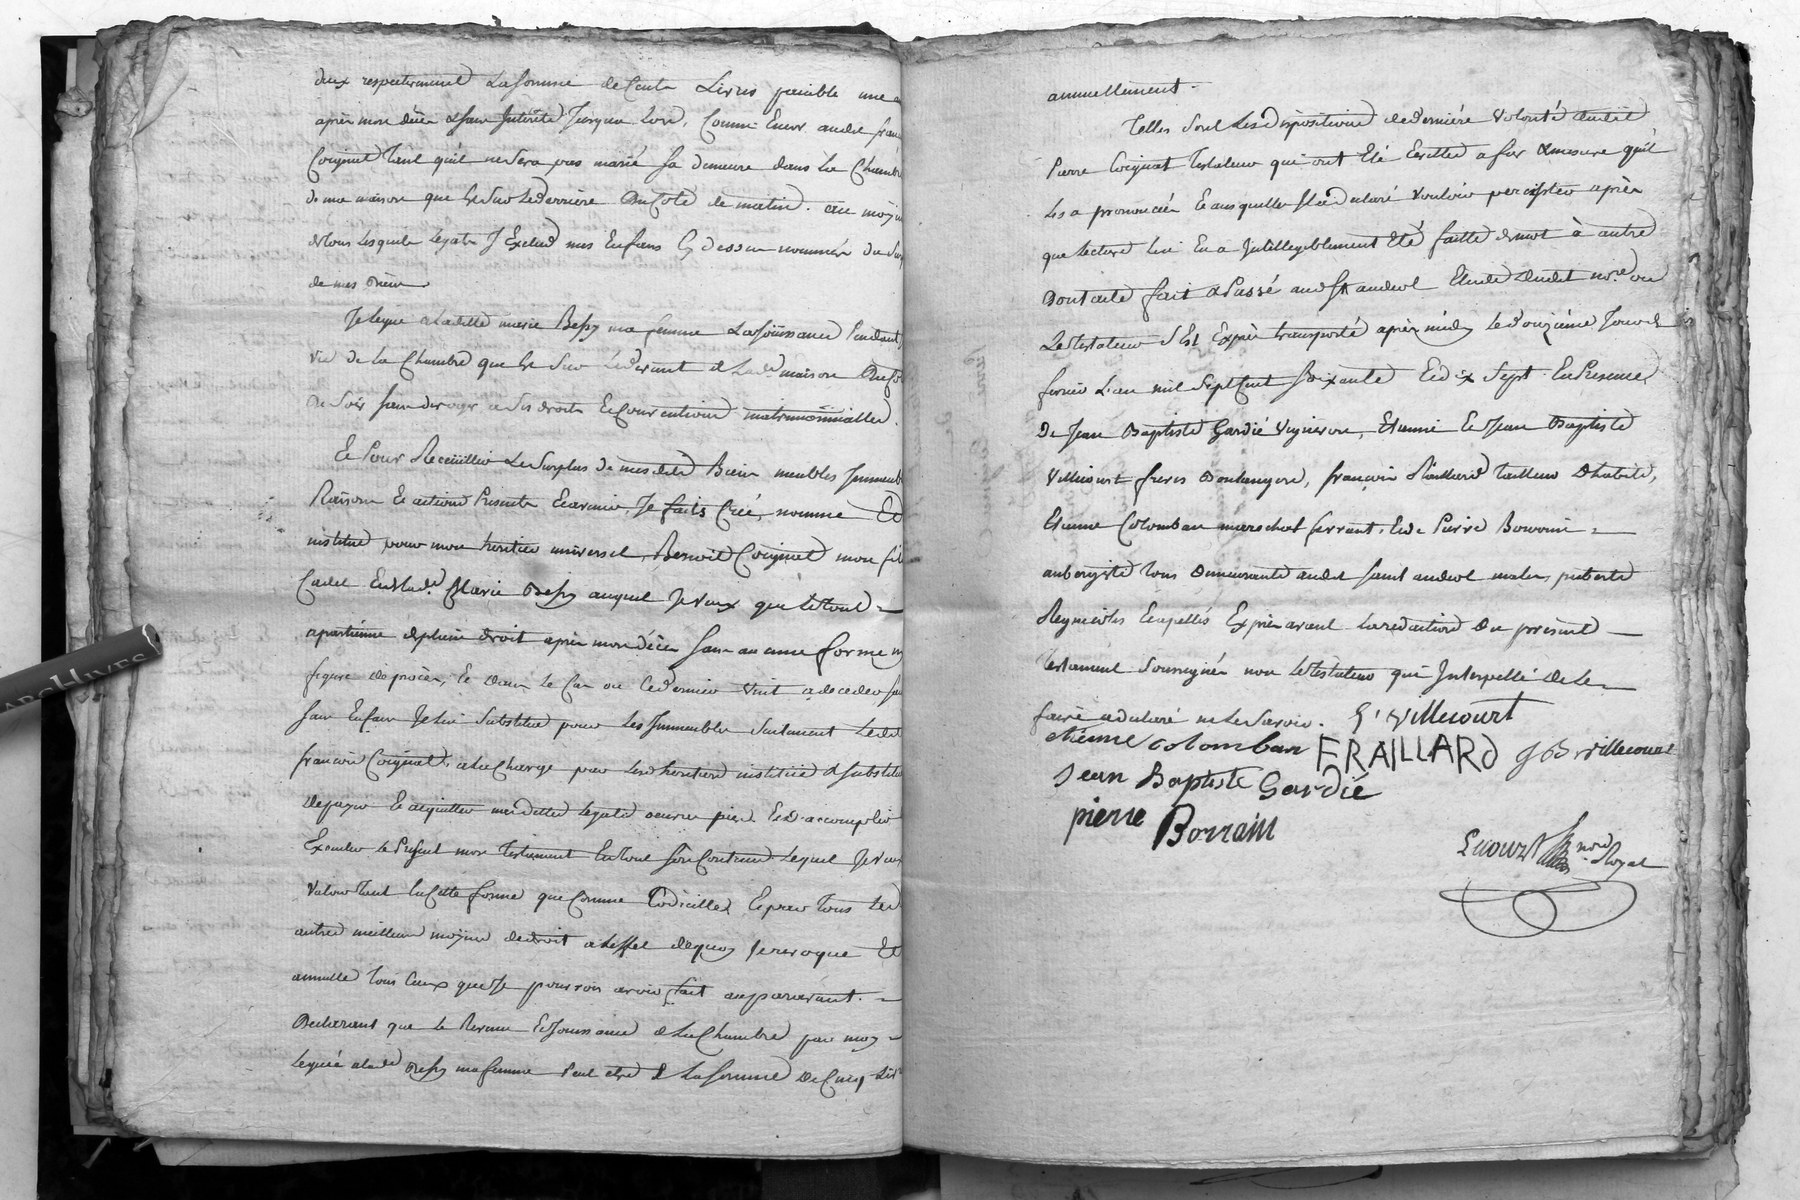 deux respectivement La somme de Cents Livres paiable une
après mon décès et sans Interets Jusqu'a Lors, Comme Encor audit fran
Coignat Tant qu'il ne sera pas marié sa demeure dans La Chambre
de ma maison que Est sur Le derrière du Coté de matin. au moyen
de tous Lesquels Legats J'Exclud mes Enfans Cy dessus nommés du Sur
de mes Biens
Je Legue a Ladite marie Bessy ma femme La Joüissance Pendant
vie de la Chambre que Est sur Le devant de Lade maison du Co
de Soir sans deroger a ses droits Et Conventions matrimonialles.
Et Pour Receüillir Le Surplus de mesdits Biens meubles Immeub
Raisons Et actions Presents Et avenir, Je faits Créé, nomme Et
institue pour mon heritier universel, Benoit Coignat mon fils
Cadet Et de lade. Marie Bessy auquel Je veux que Le tout
apartienne de plein droit après mon décès sans aucune forme ny
figure de procès, Et dans Le Cas ou Ce dernier vint a deceder
sans Enfans Je Lui Substitue pour Les Immeubles Seulement Ledit
francois Coignat, a La Charge par Lesd heritiers institué et substitué
de payer Et acquitter mes dettes Legats oeuvres pies, Et d'accomplir
Executer Le Présent mon Testament En tout son Contenu Lequel Je veux
valoir Tant En Cette forme que Comme Codicille, Et par Tous Les
autres meilleurs moyens de droit a L'effet de quoy Je revoque Et
annulle Tous Ceux que Je pourrois avoir fait auparavant.
Declarant que Le Revenu Et Jouissance de La Chambre par moy
Legué a lade Bessy ma femme Peut etre de La Somme de Cinq Livres
annuellement.
Telles Sont Les dispositions de derniére Volonté dudit
Pierre Coignat Testateur qui ont Eté Ecrittes a fur & mesure qu'il
Les a prononcées Et ausquelles Il a declaré Vouloir percister après
que Lecture Lui En a Intelligiblement Eté faitte de mot à autre
Dont acte fait & Passé aud St andeol Etude dudit nore. ou
Le Testateur S'Est Exprès transporté après midy Le douziéme Jour de
fevrier L'an mil Sept Cent Soixante Et dix Sept. En Presence
De Jean Baptiste Gardié Vigneron, Etienne Et Jean Baptiste
Villecourt freres Boulangers, françois Raillard tailleur D'habits,
Etienne Colomban mareschal ferrant, Et de Pierre Borrain
aubergiste tous Demeurants audit Saint andeol males, puberes
Regnicoles Et apellés Exprès avant La redaction Du present
Testament Soussignés non Le Testateur qui Interpellé de Le
faire a declaré ne Le Savoir. E. Villecourt
etienne colomban FRAILLARd J B villecourt
Jean Baptiste Gardié
pierre Borrain
nore Royal